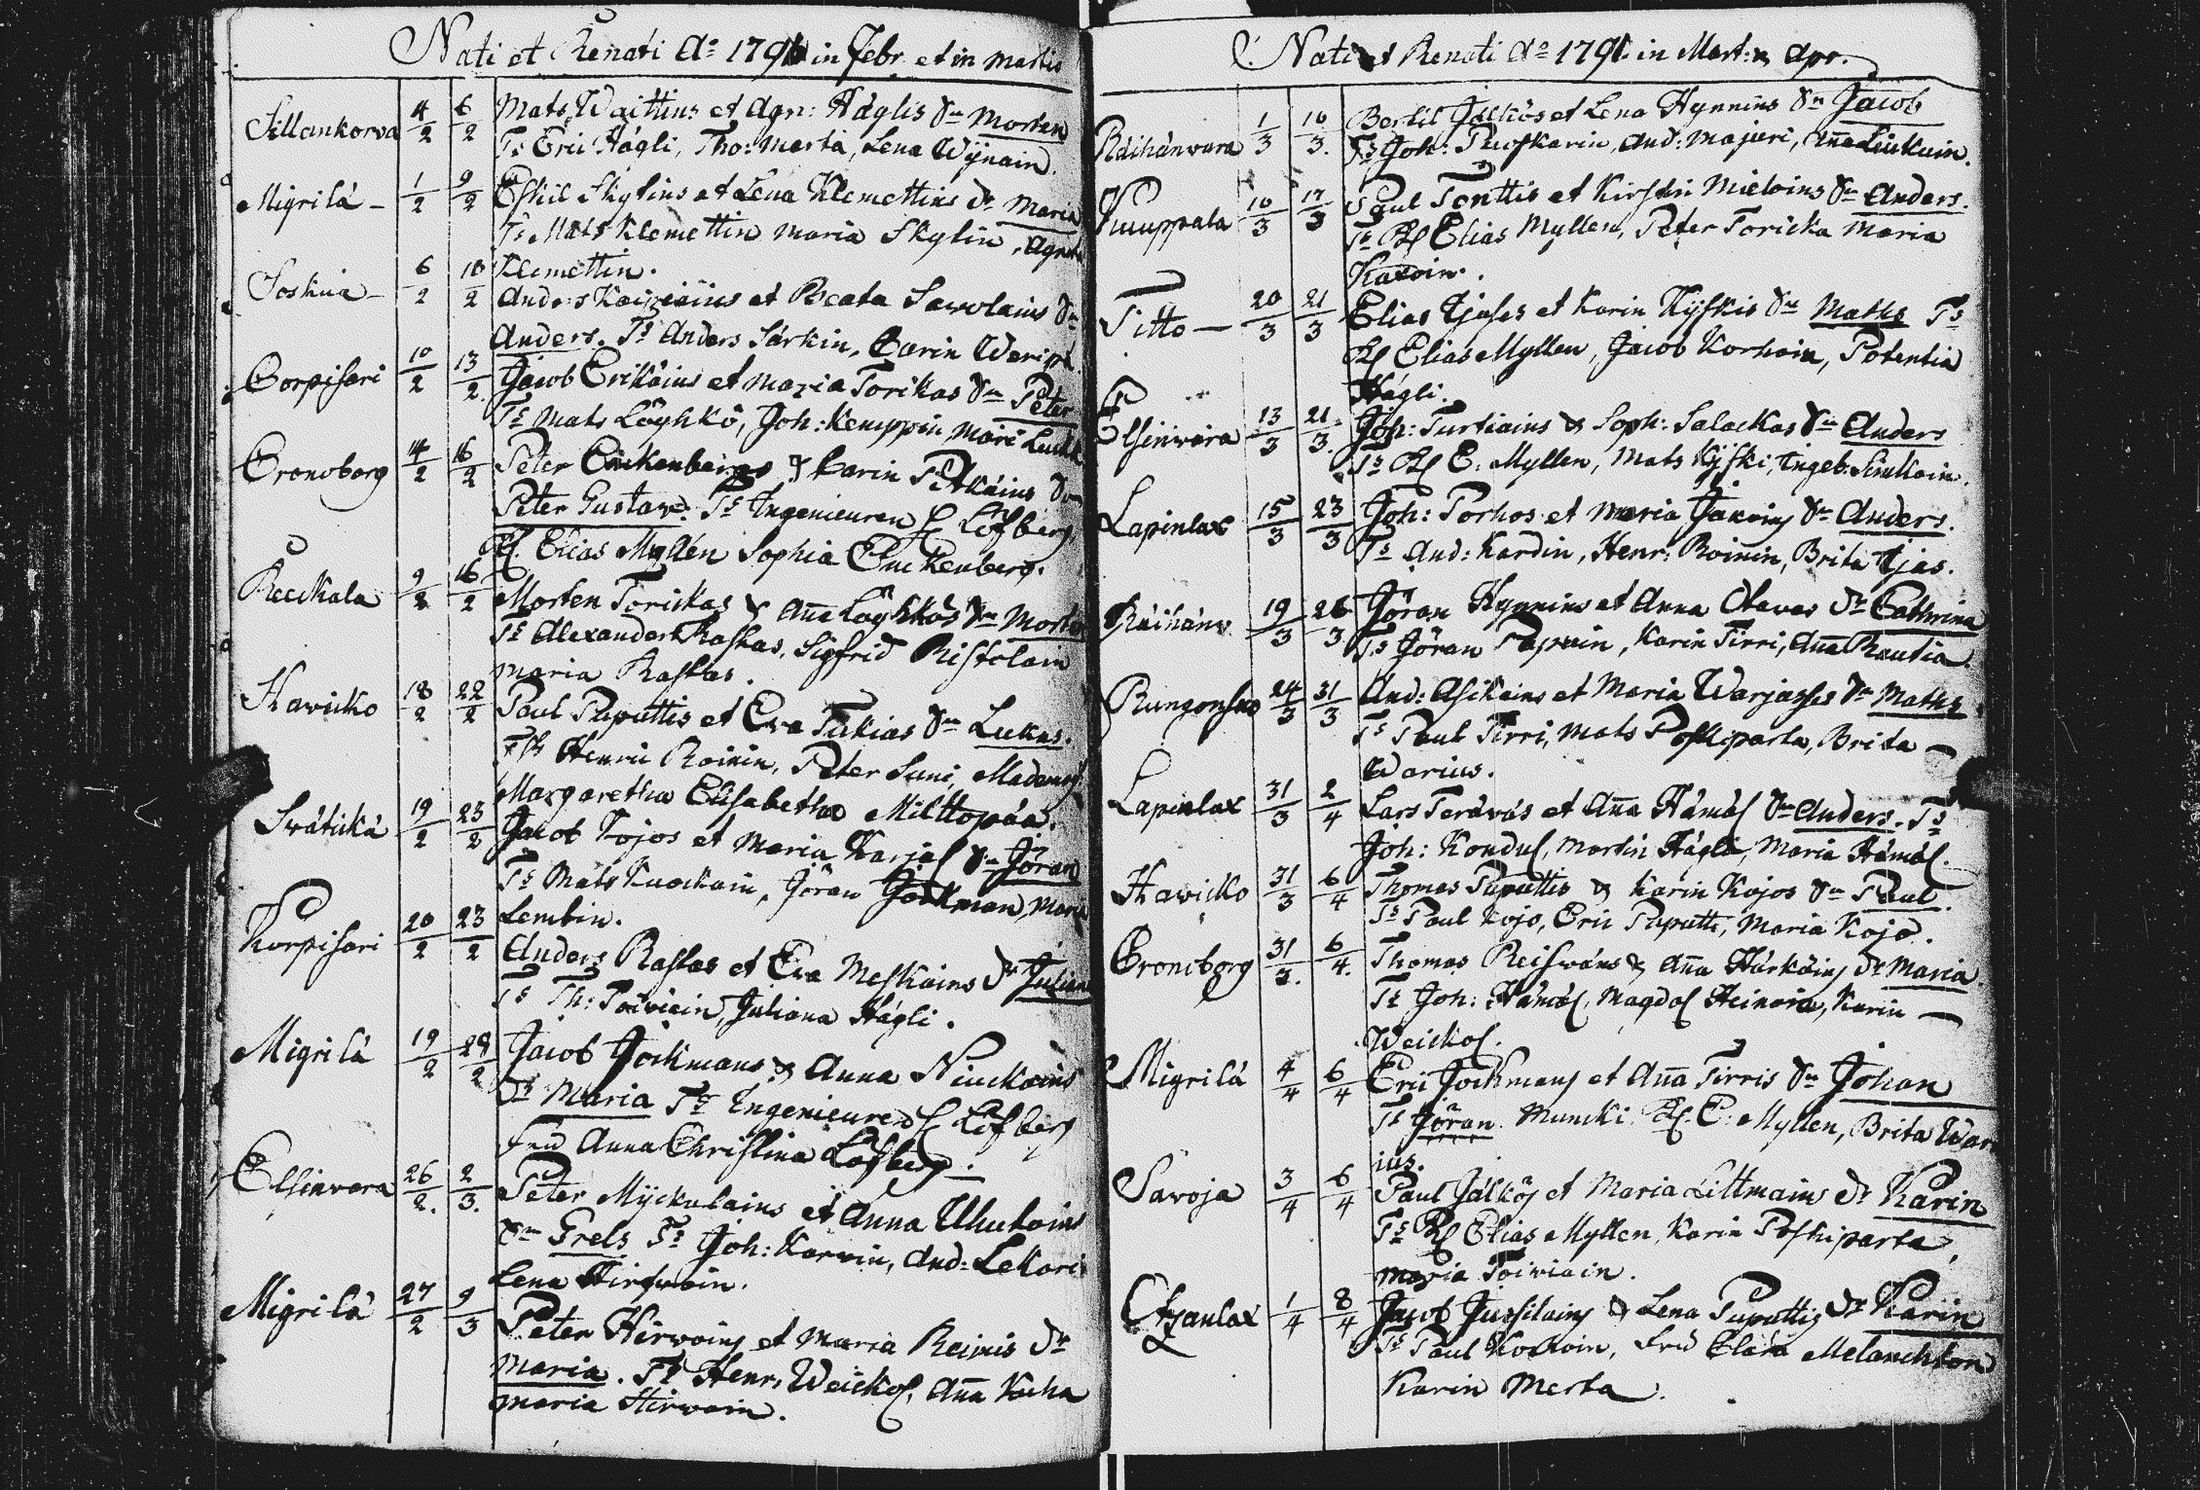 Nati et Renati Ao 1791 in Febr. et in Martio
Sillankorva 4/2 6/2 Mats Waittins et Agn: Häglis Sn Morten
Ts Eric Hägli, Tho: Merta, Lena Wijnain.
Migrilä - 1/2 9/2 Eskil Skytins et Lena Klemettins Dr Maria
Ts Mats Klemettin Maria Skytin, Agneta
Klemettin.
Soskua - 6/2 10/2 Anders et Beata Sawolains Sn
Anders. Ts Anders Särkin, Carin
Corpisari 10/2 13/2 Jacob Erikäins et Maria Torikas Sn Peter
Ts Mats Löyhkö, Joh: Kemppin Mari
Cronoborg 14/2 16/2 Peter Enckenbergs & Carin Pitkäins Sn
Peter Gustav. Ts Ingenieuren C Löfberg
Elias Myllén Sophia Enckenberg.
Reckala 9/2 16/2 Morten Torickas & Aña Löyhkös Sn Morten
Ts Alexander Raskas, Sigfrid Ristolain
Maria Raskas.
Hawicko 18/2 22/2 Paul Puputtis et Eva Tukias Sn Lukas.
Henric Roinin, Peter Suni, Madem
Margaretha Elisabetha Milttopää.
Swätickä 19/2 23/2 Jacob Kojos et Maria Karjal Sn Jöran
Ts Mats Kuockain, Jöran Jockman, Maria
Lembin.
Korpisari 20/2 23/2 Anders Raskas et Eva Meskains Dr Juliana
Ts Th: Toiviain, Juliana Hägli.
Migrilä 19/2 24/2 Jacob Jockmans & Anna Niuckains
Dr Maria Ts Ingenieuren C Löfberg
Fru Anna Christina Löfberg.
Elsinvara 26/2. 2/3. Peter Myckulains et Anna Uhukains
Sn Grels Ts Joh: Karvin, And: Lekari
Lena Hirfwoin.
Migrilä 27/2 9/3 Peter Hirwoins et Maria Reinis Dr
Maria. Ts Henr. Weickol, Aña Kocha
Maria Hirwoin.
Nati et Renati Ao 1791 in Mart: & Apr.
Räihänvara 1/3 10/3. Bertil Jälkös et Lena Hynnins Sn Jacob
Ts Joh: Puuskarin, And: Majuri, Aña Liukuin.
Kuuppala 10/3 17/3 Paul Tonttis et Kirstin Mieloins Sn Anders.
Ts Elias Myllen, Peter Toricka Maria
Karvin.
Titto - 20/3 21/3 Elias Tjases et Karin Kyskis Sn Maths Ts
Elias Myllen, Jacob Korhoin, Potentia
Hägli.
Elsinvara 13/3 21/3. Joh: Turtiains & Soph: Salackas Sn Anders
Ts E. Myllen, Mats Kyski, Ingeb: Sinkoin.
Lapinlax 15/3 23/3 Joh: Porhos et Maria Jakoins Sn Anders.
Ts And: Kardin, Henr: Roinin, Brita Tjas.
Räihänv 19/3 26/3 Jöran Hynnins et Anna Olavas Dr Cathrina
Ts Jöran Papuin, Karin Tirri, Aña Rautia.
Rungonsuo 24/3 31/3 And: Asikains et Maria Warjasses Sn Maths
Ts Paul Tirri, Mats Poskiparta, Brita -
Warius.
Lapinlax 31/3 2/4 Lars Teräväs et Aña Hämäl Sn Anders. Ts
Joh: Kondul, Martin Hägla, Maria Hämäl.
Hawicko 31/3 6/4 Thomas Puputtis & Karin Kojos Sn Paul.
Ts Paul Kojo, Eric Puputti, Maria Kojo.
Cronoborg 31/3. 6/4. Thomas Reiswäns & Aña Härkäins Dr Maria.
Ts Joh: Hämäl, Magdal Heinoin, Karin -
Weickol.
Migrilä 4/4 6/4 Eric Jockmans et Aña Tirris Sn Johan
Ts Jöran Muncki. E: Myllen, Brita War
ius.
Savoja 3/4 6/4 Paul Jälkös et Maria Littmains Dr Karin
Ts Elias Myllen, Karin Poskiparta,
Maria Toiviain.
Otsanlax 1/4 8/4 Jacob Jussilains & Lena Puputtis Dr Karin
Ts Paul Koskoin, Fru Clara Melanchton
Karin Merta.